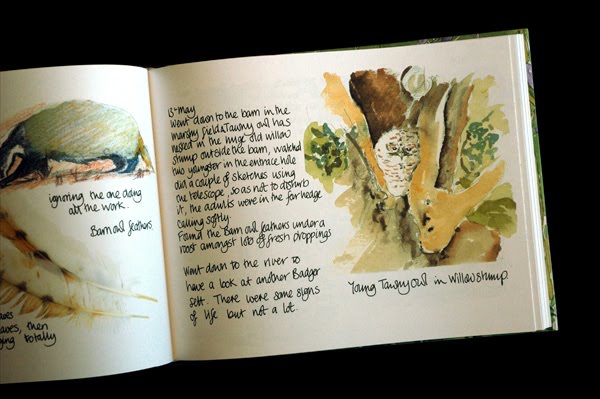 ignoring the one doing
all the work.
Barn owl feathers.
aves, then
ging totally
13th May
Went down to the barn in the
marshy field a Tawny owl has
nested in the huge old willow
stump outside the barn, watched
this youngster in the entrace hole
did a couple of sketches using
the telescope, so as not to disturb
it, the adults were in the far hedge
calling softly.
Found the Barn owl feathers under a
roost amongst lots of fresh droppings
Went down to the river to
have a look at another Badger
sett. There were some signs
of life but not a lot.
Young Tawny owl in Willow stump